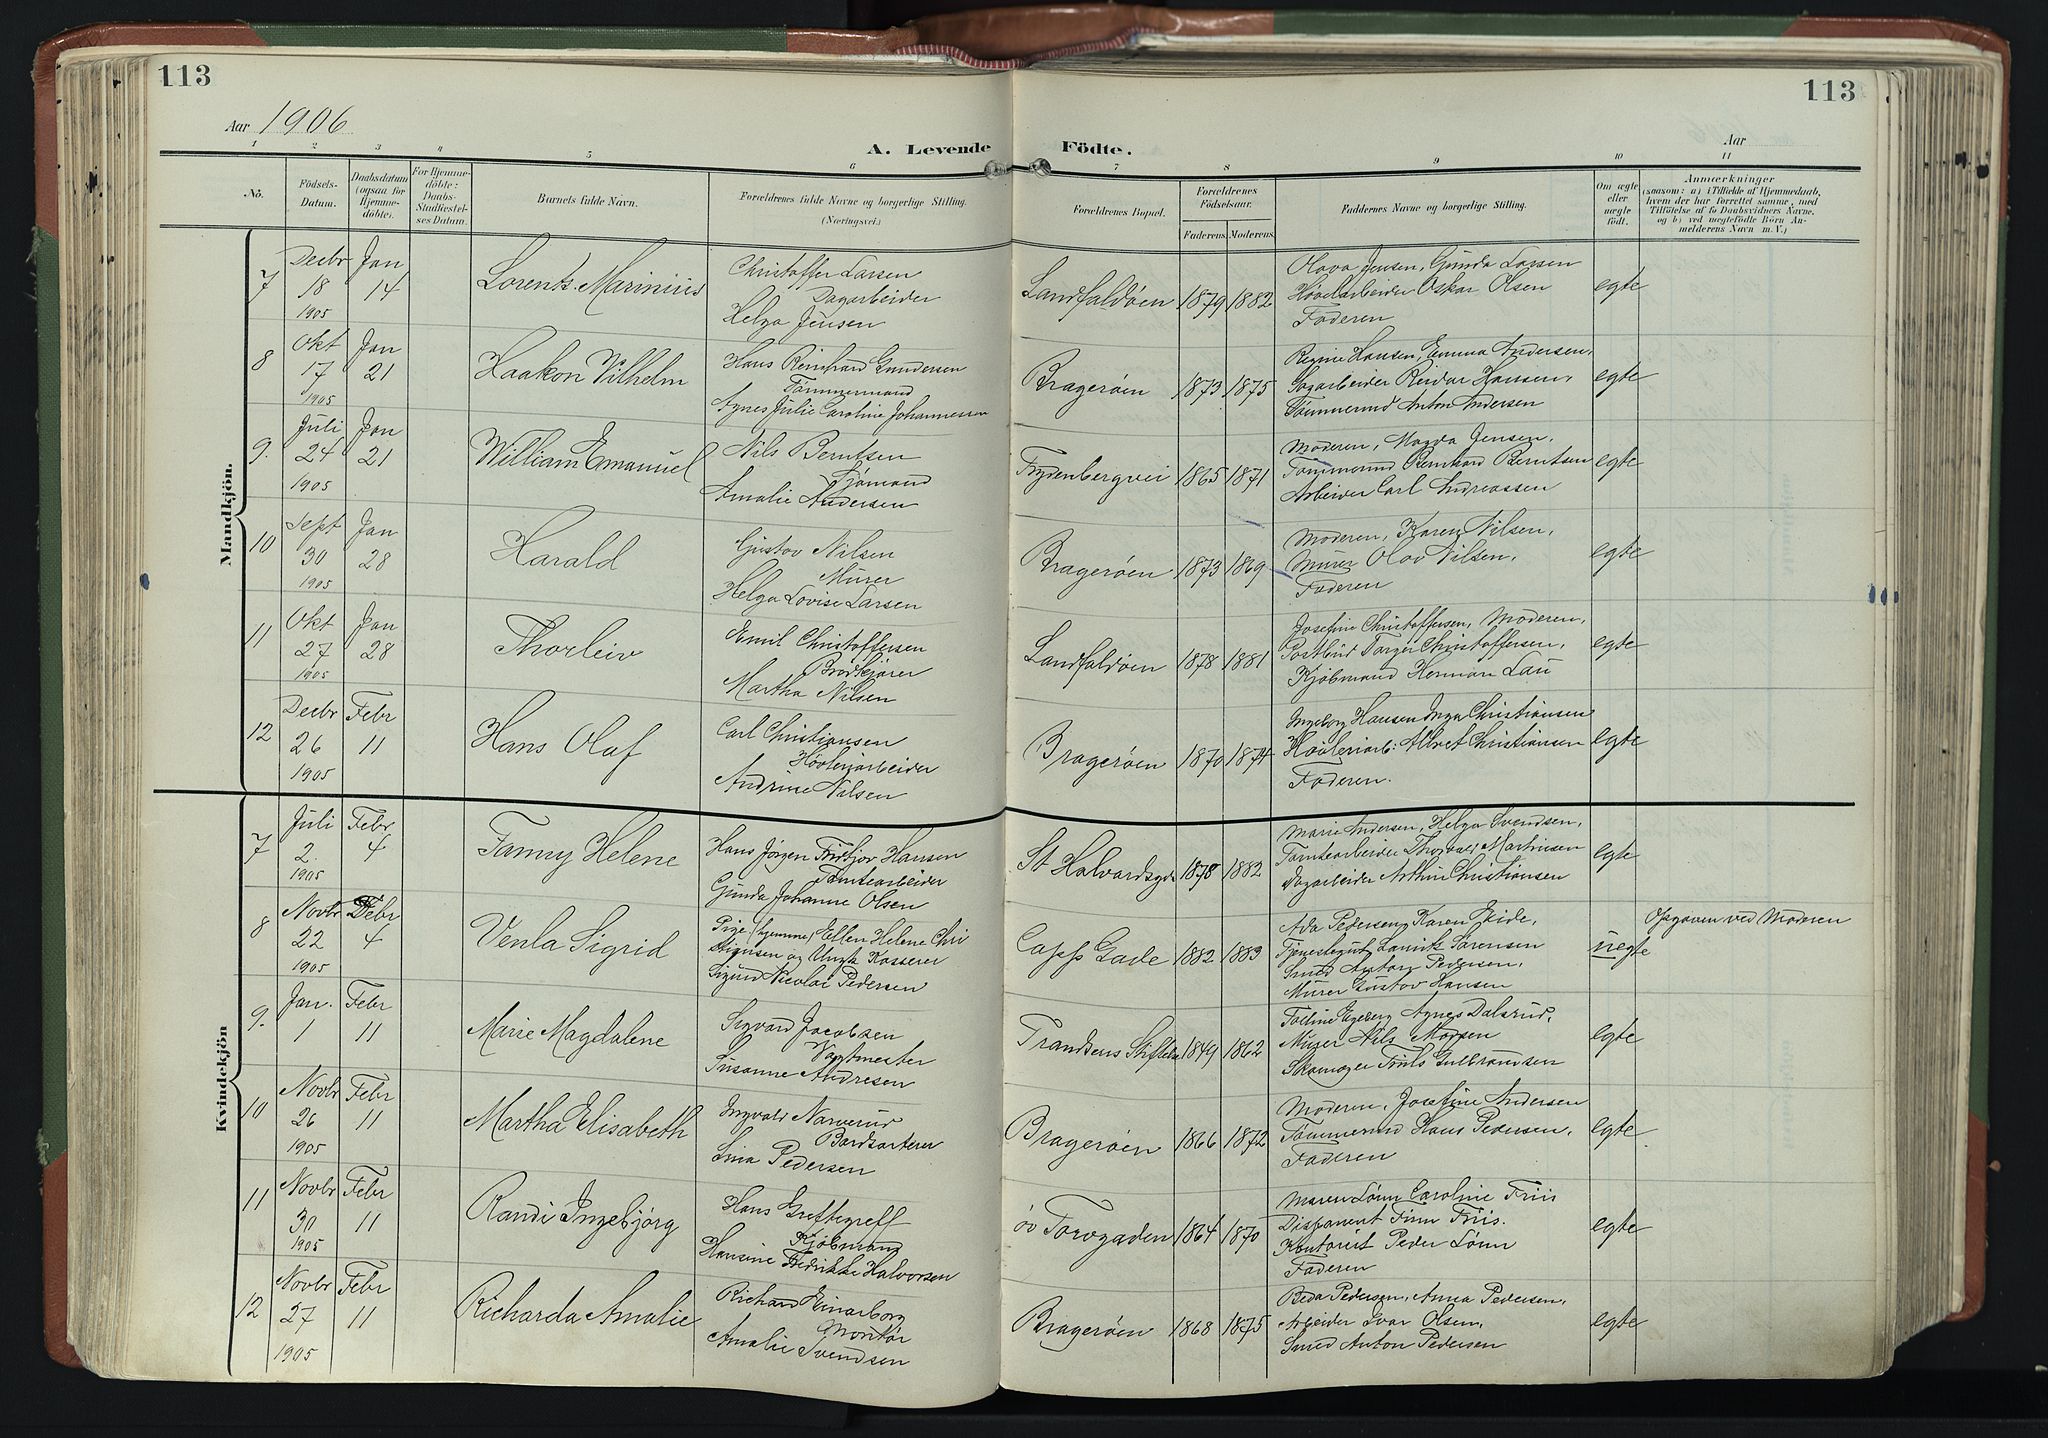 113
113
Aar 1906
Aar
A. Levende Födte.
1 2 3 4 5 6 7 8 9 10 11
No.
Födsels-Datum.
Daabsdatum (ogsaa for Hjemmedöbte).
For Hjemmedöbte: Daabs-Stadfæstelses Datum.
Barnets fulde Navn.
Forældrenes fulde Navne og borgerlige Stilling. (Næringsvei.)
Forældrenes Bopæl.
Forældrenes Födselsaar.
Faderens. Moderens.
Faddernes Navne og borgerlige Stilling.
Om ægte eller uægte födt.
Anmærkninger
(saasom: a) i Tilfælde af Hjemmedaab, hvem der har forrettet samme, med Tilföielse af to Daabsvidners Navne. og b) ved uægtefödte Börn Anmelderens Navn m. V.)
Mandkjön.
7 Decbr 18 1905 Jan 14 Lorents Marinius
Christoffer Larsen
Dagarbeider
Helga Jensen
Landfaldøen 1879 1882
Olava Jensen, Gunda Larsen
Høvelarbeider Oskar Olsen
Faderen
egte
8 Okt 17 1905 Jan 21 Haakon Vilhelm
Hans Reinhard Gundersen
Tømmermand
Agnes Julie Caroline Johannessen
Bragerøen 1873 1875
Regine Hansen, Emma Andersen,
Sagarbeider Reidar Hansen,
Tømmermd Anton Andersen
egte
9. Juli 24 1905 Jan 21 William Emanuel
Nils Berntsen
Sjømand
Amalie Andersen
Frydenbergvei 1865 1871
Moderen, Magda Jensen,
Tømmermd Bernhard Berntsen
Arbeider Carl Andreassen
egte
10 Sept 30 1905 Jan 28 Harald
Gustav Nilsen
Murer
Helga Lovise Larsen
Bragerøen 1873 1869
Moderen, Karen Nilsen,
Murer Olav Nilsen,
Faderen
egte
11 Okt 27 1905 Jan 28 Thorleiv
Emil Christoffersen
Brødkjører
Martha Nilsen
Landfaldøen 1878 1881
Josefine Christoffersen, Moderen,
Postbud Torger Christoffersen,
Kjøbmand Herman Lau
egte
12 Decbr 26 1905 Febr 11 Hans Olaf
Carl Christiansen
Høvleriarbeider
Andrine Nilsen
Bragerøen 1870 1874
Ingeborg Hansen Inga Christiansen
Høvleriarb: Albret Christiansen
Faderen.
egte
Kvindekjön
7 Juli 2. 1905 Febr 4 Fanny Helene
Hans Jørgen Fritjov Hansen
Tomtearbeider
Gunda Johanne Olsen
St Halvardsgd 1878 1882
Marie Andersen, Helga Svendsen,
Tomtearbeider Thorvald Martinsen
Dagarbeider Arthur Christiansen
egte
8 Novbr 22 1905 Febr 4 Venla Sigrid
Pige (hjemme) Ellen Helene Chri
stiansen og Ungk Kasserer
Sigurd Nicolai Pedersen
Capps Gade 1882 1883
Ada Pedersen, Karen Eide,
Tjenestegut Laurik Sørensen
Smed Anton Pedersen,
Murer Gustav Hansen
uegte
Opgaven ved Moderen
9. Jan. 1 Febr 11 Marie Magdalene
Sigvard Jacobsen
Vagtmester
Susanne Andresen
Trandsens Stiftelse 1849 1862
Egeberg Agnes Dalsrud,
Murer Nils Madsen
Skomager Truls Gulbrandsen
egte
10 Novbr 26 1905 Febr 11 Martha Elisabeth
Ingvald Narverud
Bordsorterer
Lina Pedersen
Bragerøen 1866 1872
Moderen, Josefine Andersen
Tømmermd Hans Pedersen,
Faderen
egte
11 Novbr 30 1905 Febr 11 Randi Ingebjørg
Hans Greftegreff
Kjøbmand
Hansine Fredrikke Halvorsen
øv Torvgaden 1864 1870
Maren Lønn Caroline Friis
Disponent Finn Friis.
Kontorist Peder Lønn
Faderen
egte
12 Novbr 27 1905 Febr 11 Richarda Amalie
Richard Einarborg
Montør
Amalie Svendsen
Bragerøen 1868 1875
Beda Pedersen, Anna Pedersen,
Arbeider Ivar Olsen,
Smed Anton Pedersen
egte